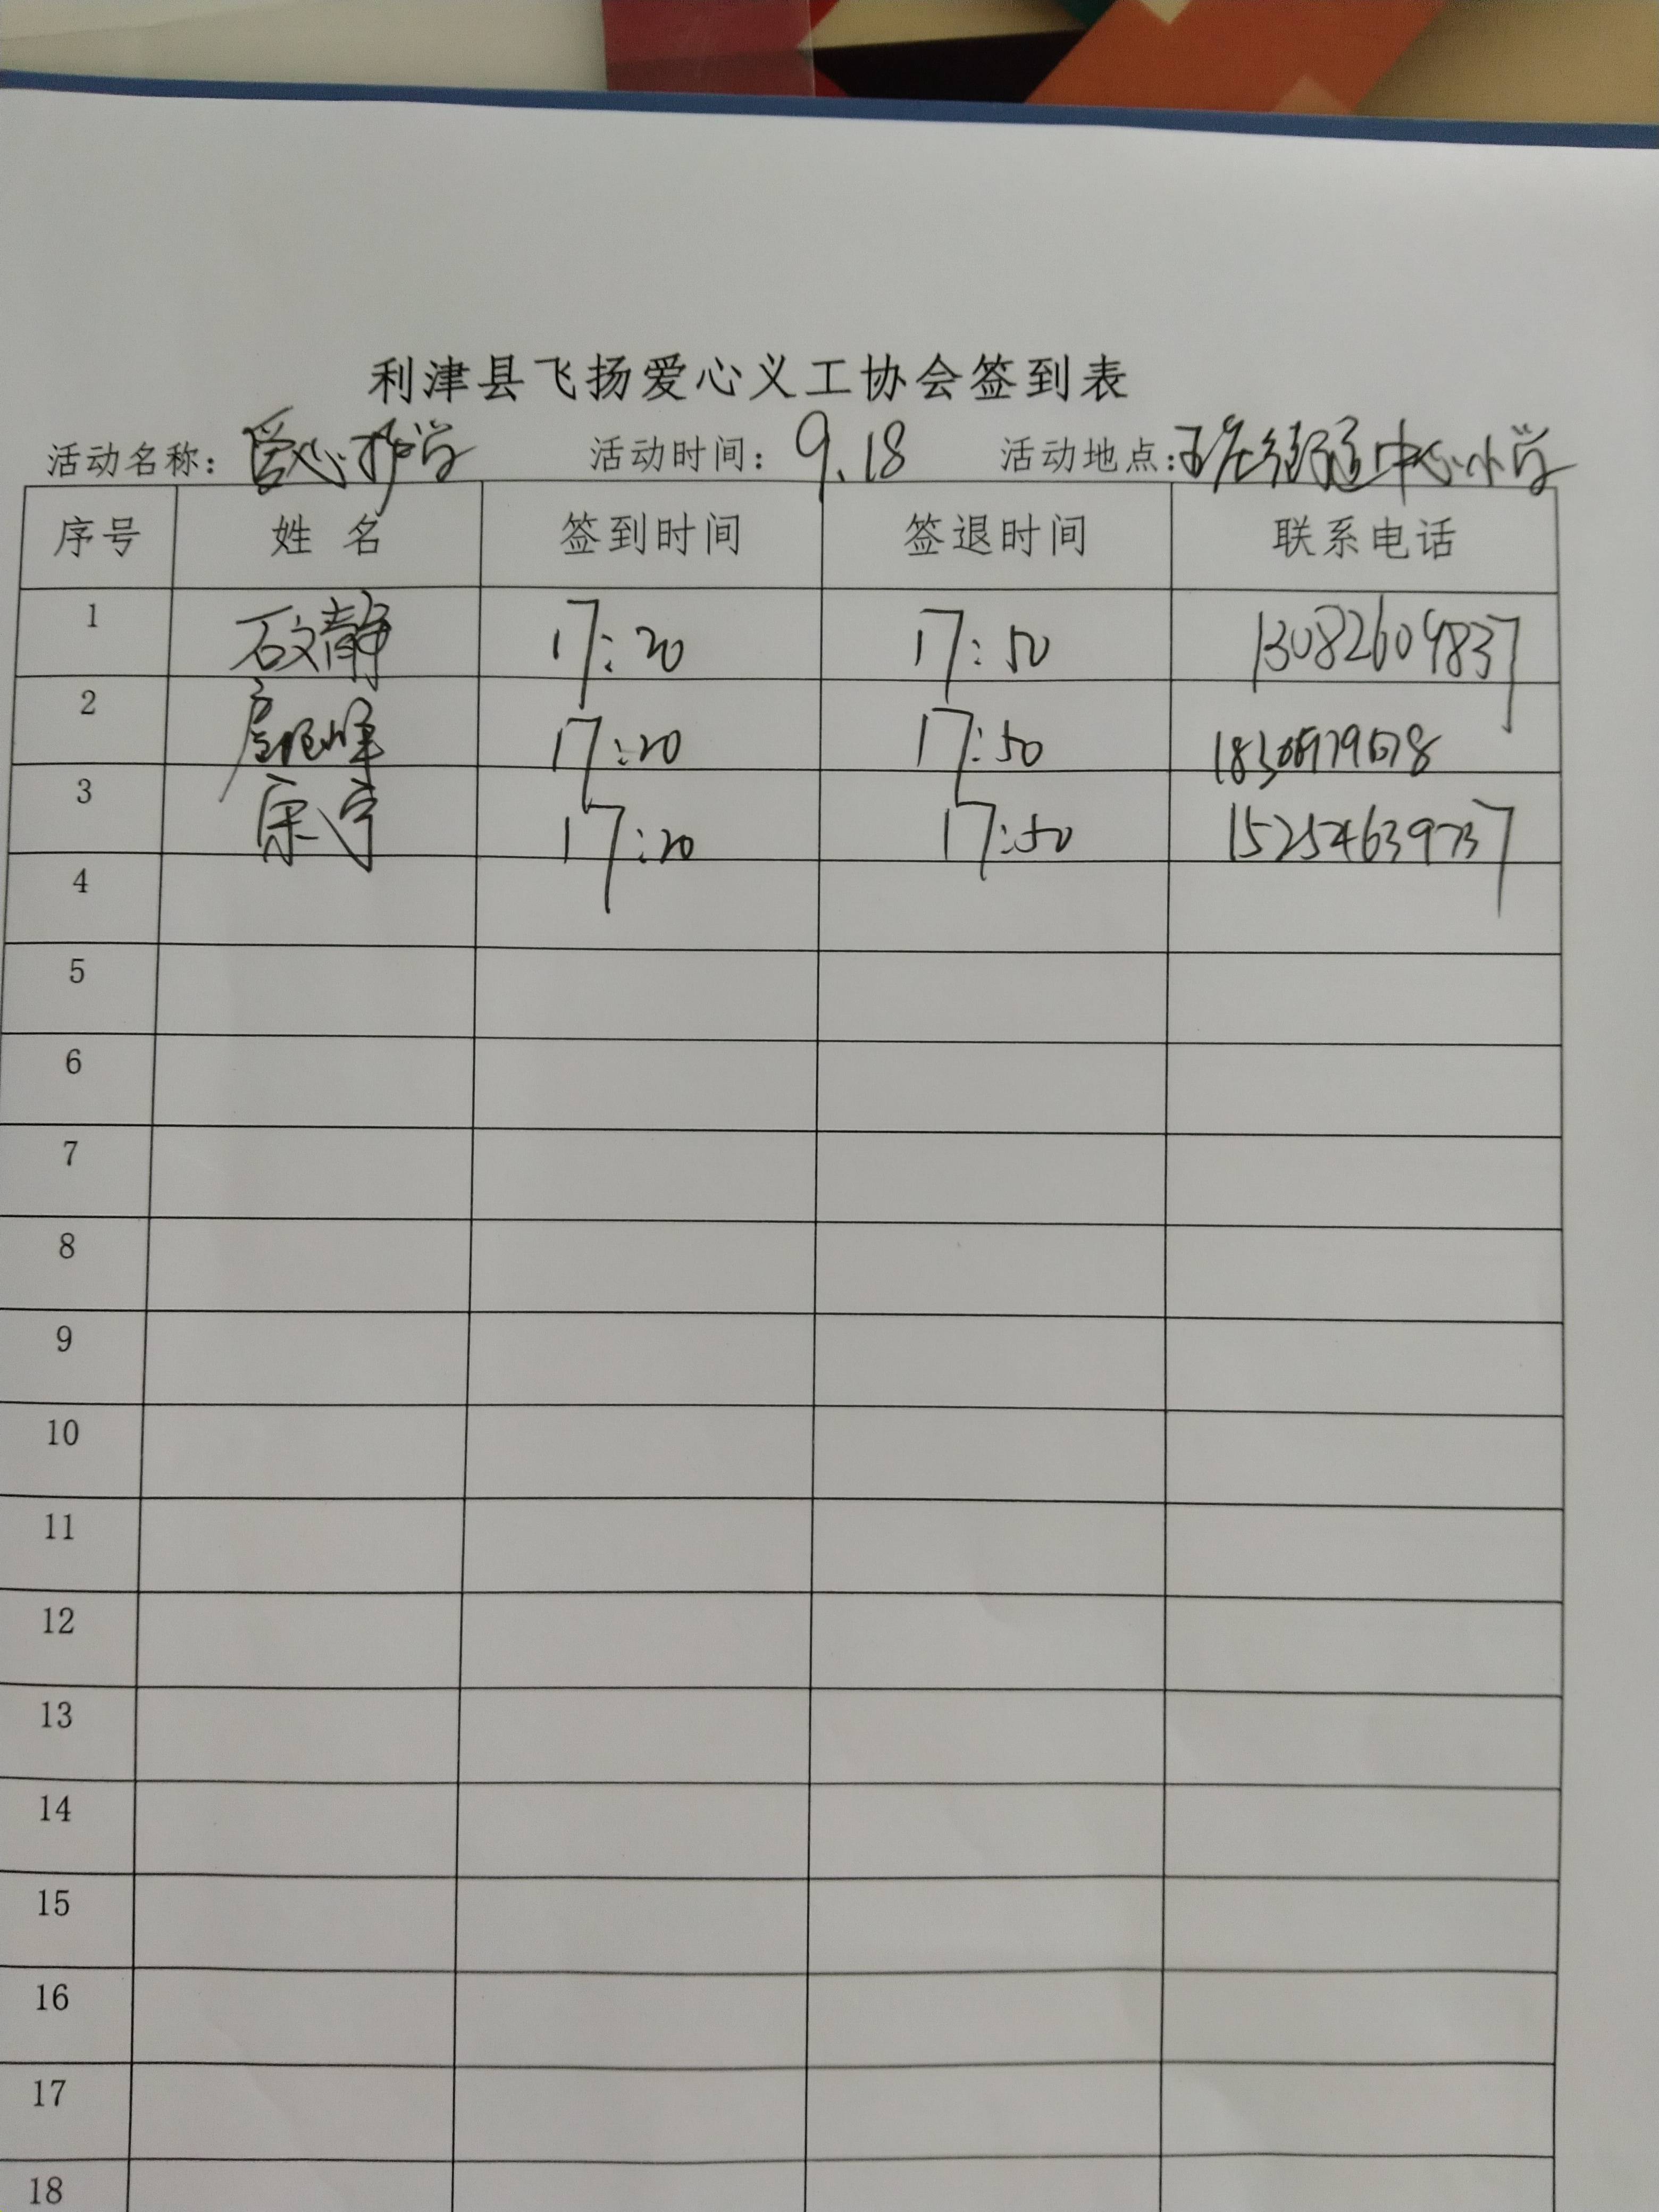 利津县飞扬爱心义工协会签到表
活动名称：爱心护学 活动时间：9.18 活动地点：街道中心小学
序号 姓名 签到时间 签退时间 联系电话
1 石文静 17:20 17:50 13082609837
2 17:20 17:50
3 宋宁 17:20 17:50 15254639737
4
5
6
7
8
9
10
11
12
13
14
15
16
17
18